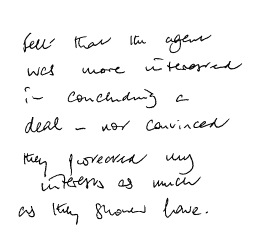 felt that the agent
was more interested
in concluding a
deal - not convinced
they protected my
interests as much
as they should have.